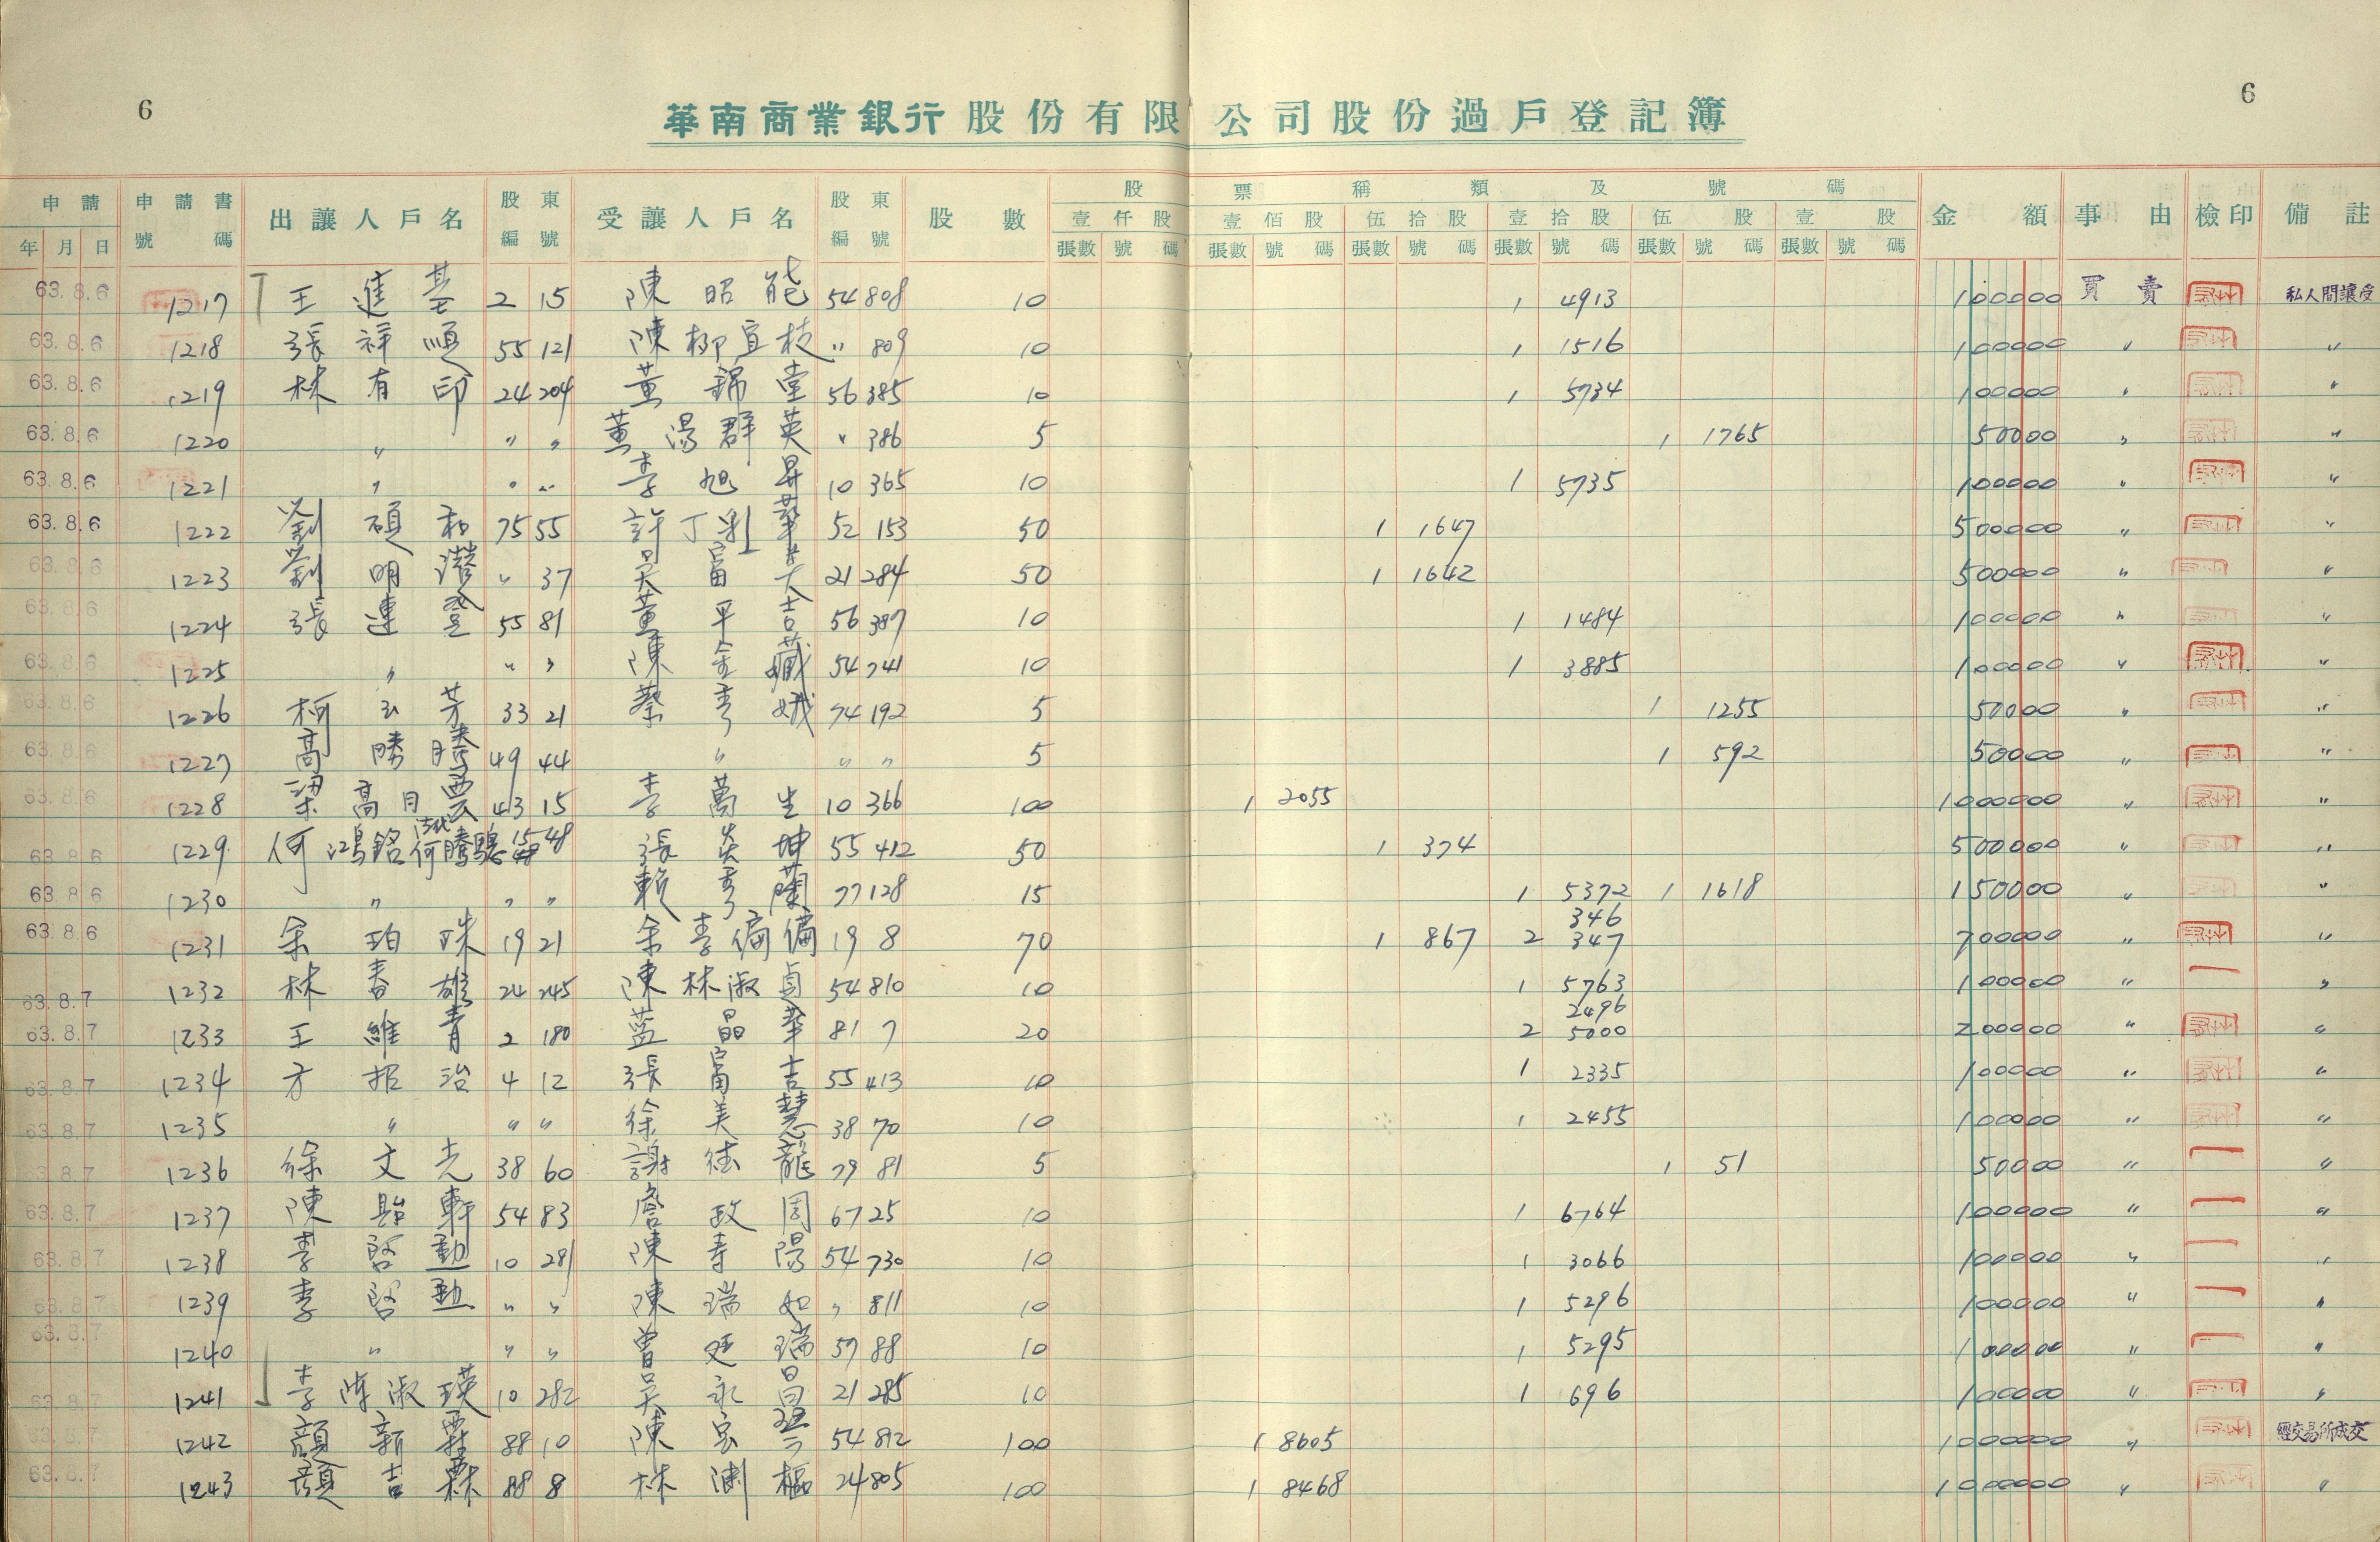 6
華南商業銀行股份有限公司股份過戶登記簿
6
申請 申請書 出讓人戶名 股東 受讓人戶名 股東 股數 股票種類及號碼 金額 事由 檢印 備註
年 月 日 號碼 編號 編號 壹仟股 壹佰股 伍拾股 壹拾股 伍股 壹股
張數 號碼 張數 號碼 張數 號碼 張數 號碼 張數 號碼 張數 號碼
63.8.6 1217 王進基 2 15 陳昭能 54 808 10 1 4913 100000 買賣 私人間讓受
63.8.6 1218 張祥順 55 121 陳柳宜枝 〃 809 10 1 1516 100000 〃 〃
63.8.6 1219 林有印 24 204 黃錦堂 56 385 10 1 5734 100000 〃 〃
63.8.6 1220 〃 〃 〃 黃湯群英 〃 386 5 1 1765 50000 〃 〃
63.8.6 1221 〃 〃 〃 李旭昇 10 365 10 1 5735 100000 〃 〃
63.8.6 1222 劉碩和 75 55 許丁彩華 52 153 50 1 1647 500000 〃 〃
63.8.6 1223 劉明 〃 37 吳富 21 284 50 1 1642 500000 〃 〃
63.8.6 1224 張連登 55 81 黃平吉 56 387 10 1 1484 100000 〃 〃
63.8.6 1225 〃 〃 〃 陳金 54 741 10 1 3885 100000 〃 〃
63.8.6 1226 柯玉芳 33 21 蔡秀娥 74 192 5 1 1255 50000 〃 〃
63.8.6 1227 高勝 49 44 〃 〃 〃 5 1 592 50000 〃 〃
63.8.6 1228 梁高月雲 43 15 李萬生 10 366 100 1 2055 1000000 〃 〃
63.8.6 1229 何鴻銘 何騰驄 15 48 張炎坤 55 412 50 1 374 500000 〃 〃
63.8.6 1230 〃 〃 〃 賴秀蘭 77 128 15 1 5372 1 1618 150000 〃 〃
346
63.8.6 1231 余珀珠 19 21 余李偏偏 19 8 70 1 867 2 347 700000 〃 〃
63.8.7 1232 林春雄 24 245 陳林淑貞 54 810 10 1 5763 100000 〃 〃
2496
63.8.7 1233 王維青 2 180 藍晶華 81 7 20 2 5000 200000 〃 〃
63.8.7 1234 方招治 4 12 張富吉 55 413 10 1 2335 100000 〃 〃
63.8.7 1235 〃 〃 〃 徐美慧 38 70 10 1 2455 100000 〃 〃
63.8.7 1236 徐文光 38 60 謝德龍 79 81 5 1 51 50000 〃 〃
63.8.7 1237 陳貽軒 54 83 詹政周 67 25 10 1 6764 100000 〃 〃
63.8.7 1238 李啓勳 10 281 陳壽陽 54 730 10 1 3066 100000 〃 〃
63.8.7 1239 李啓勳 〃 〃 陳瑞如 〃 811 10 1 5296 100000 〃 〃
63.8.7 1240 〃 〃 〃 曾廷瑞 57 88 10 1 5295 100000 〃 〃
63.8.7 1241 李陳淑瑛 10 282 吳永昌 21 285 10 1 696 100000 〃 〃
63.8.7 1242 顏新霖 88 10 陳宗 54 812 100 1 8605 1000000 〃 經交易所成交
63.8.7 1243 顏吉霖 88 8 林樞 24 805 100 1 8468 1000000 〃 〃